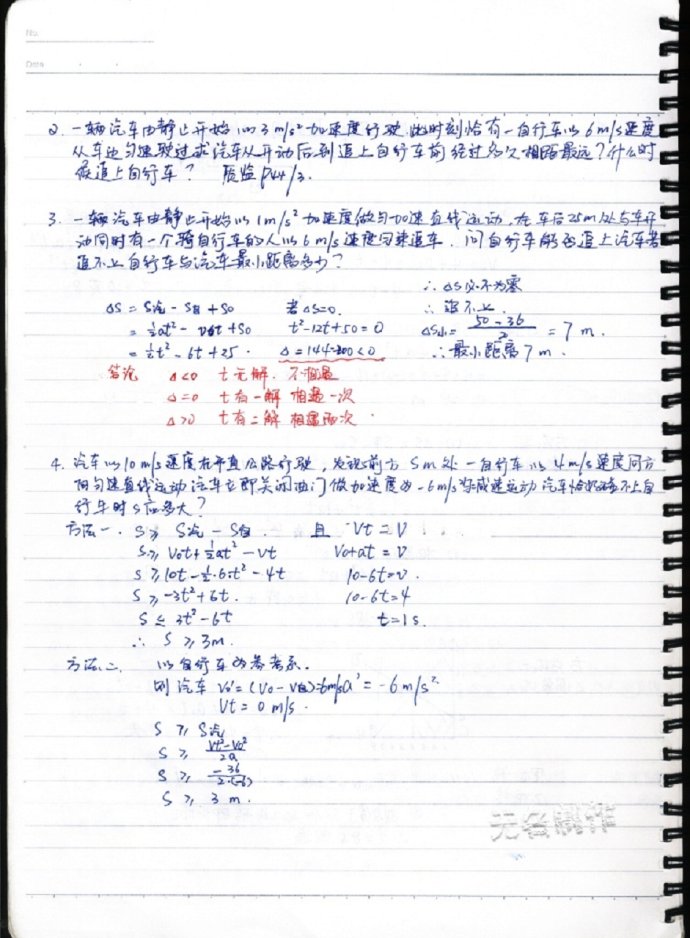 No.
Date
2. 一辆汽车由静止开始以3m/s²加速度行驶,此时刻恰有一自行车以6m/s速度
从车边匀速驶过求汽车从开动后到追上自行车前经过多久相距最远?什么时
候追上自行车? 质监P44/3.
3. 一辆汽车由静止开始以1m/s²加速度做匀加速直线运动,在车后25m处与车开
动同时有一个骑自行车的人以6m/s速度匀速追车.问自行车能否追上汽车若
追不上自行车与汽车最小距离多少?
∴ΔS必不为零
ΔS = S汽 - S自 + S0 若ΔS=0. ∴追不上.
= ½at² - V自t + S0 t²-12t+50=0 ΔS小= (50-36)/2 = 7m.
= ½t² - 6t + 25. Δ=144-200<0 ∴最小距离7m.
结论 Δ<0 t无解. 不相遇
Δ=0 t有一解 相遇一次
Δ>0 t有二解 相遇两次.
4. 汽车以10m/s速度在平直公路行驶,发现前方Sm处一自行车以4m/s速度同方
向匀速直线运动汽车立即关闭油门做加速度为-6m/s²匀减速运动汽车恰好碰不上自
行车时S应多大?
方法一. S≥S汽-S自. 且 Vt=V
S≥V0t+½at²-Vt V0+at=V
S≥10t-½·6·t²-4t 10-6t=v.
S≥-3t²+6t. 10-6t=4
S≤3t²-6t t=1s.
∴ S≥3m.
方法二. 以自行车为参考系.
则汽车V0'=(V0-V自)=6m/s a'=-6m/s².
Vt=0m/s.
S≥S汽
S≥ (Vt²-V0²)/2a
S≥ -36/2·(-6)
S≥3m.
无名制作